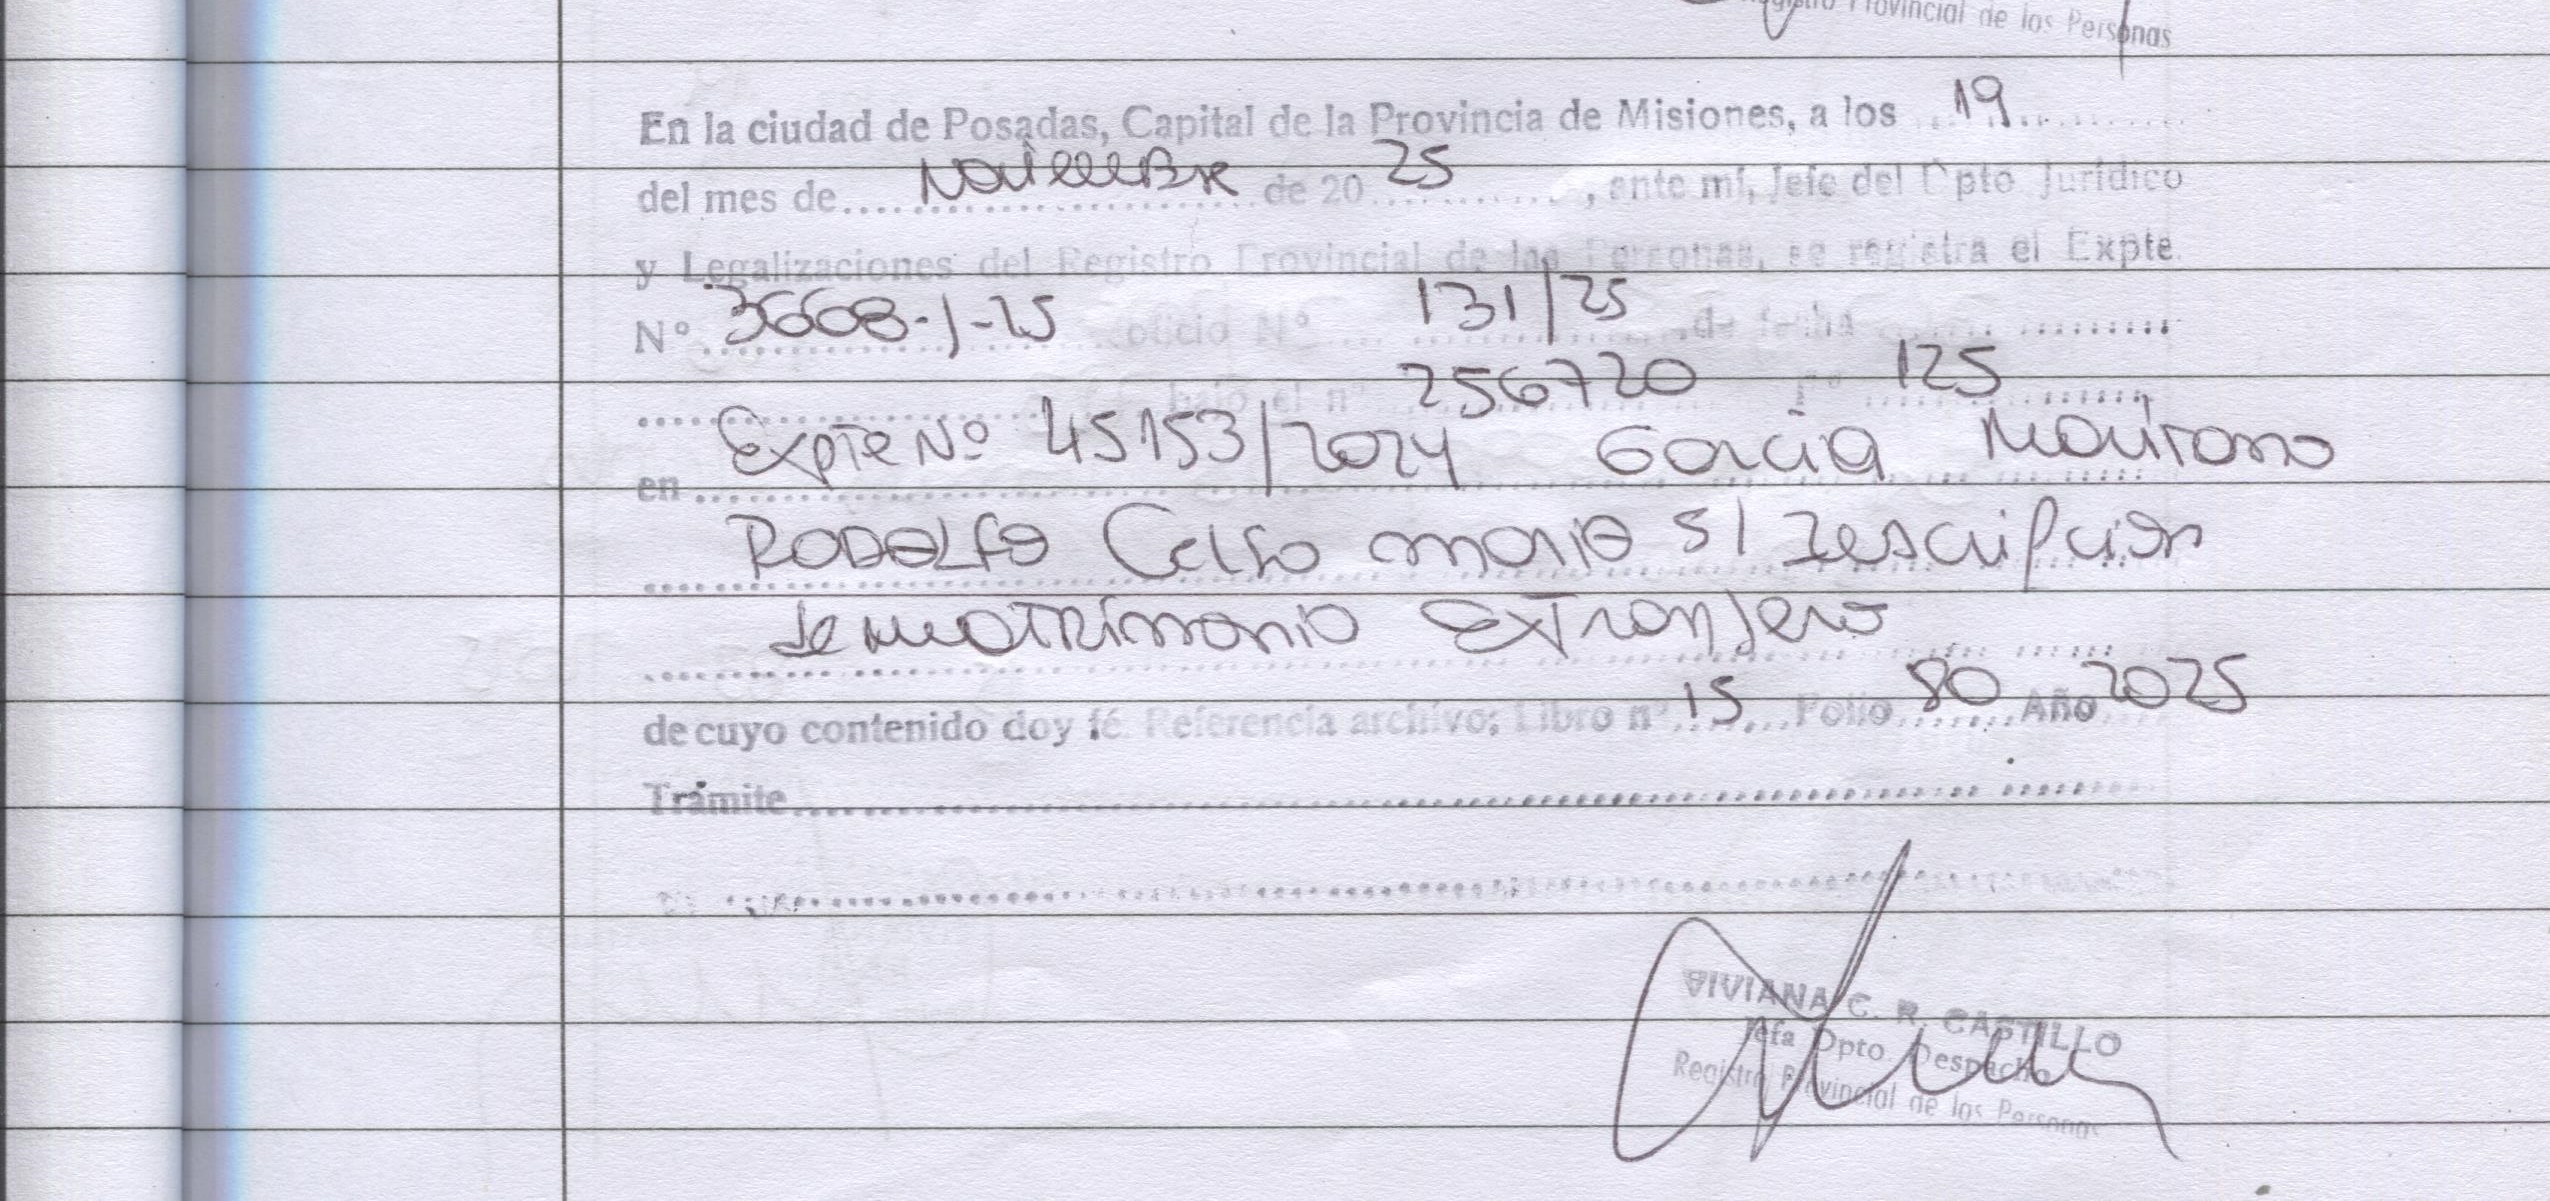 Registro Provincial de las Personas
En la ciudad de Posadas, Capital de la Provincia de Misiones, a los 19
del mes de Noviembre de 20 25, ante mí, Jefe del Dpto Jurídico
y Legalizaciones del Registro Provincial de las Personas, se registra el Expte.
Nº 3668-J-25 oficio Nº 131/25 de fecha
bajo el nº 256720 Fº 125
en Expte Nº 45153/2024 Garcia
Rodolfo Celso Mario s/ Iescripcion
de matrimonio Extranjero
de cuyo contenido doy fé. Referencia archivo: Libro nº 15 Folio 80 Año 2025
Trámite
VIVIANA C. R. CASTILLO
Jefa Dpto Despacho
Registro Provincial de las Personas